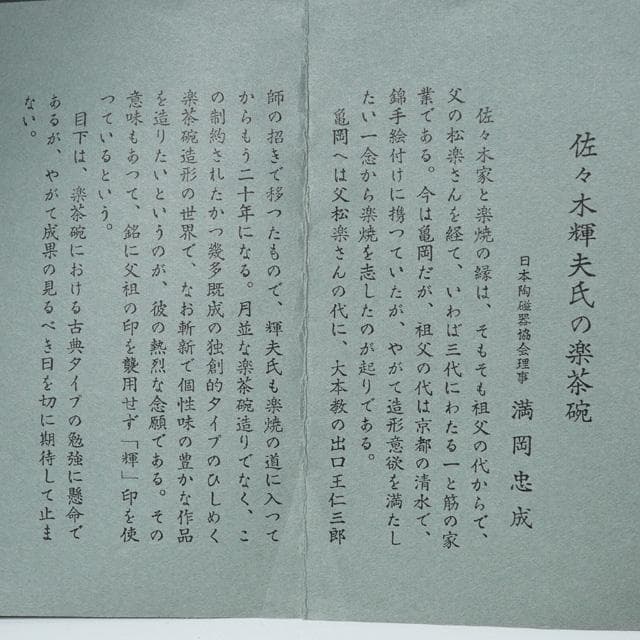 佐々木輝夫氏の楽茶碗
日本陶磁器協会理事　満岡忠成
佐々木家と楽焼の縁は、そもそも祖父の代からで、
父の松楽さんを経て、いわば三代にわたる一と筋の家
業である。今は亀岡だが、祖父の代は京都の清水で、
錦手絵付けに携つていたが、やがて造形意欲を満たし
たい一念から楽焼を志したのが起りである。
亀岡へは父松楽さんの代に、大本教の出口王仁三郎
師の招きで移つたもので、輝夫氏も楽焼の道に入つて
からもう二十年になる。月並な楽茶碗造りでなく、こ
の制約されたかつ幾多既成の独創的タイプのひしめく
楽茶碗造形の世界で、なお斬新で個性味の豊かな作品
を造りたいというのが、彼の熱烈な念願である。その
意味もあつて、銘に父祖の印を襲用せず「輝」印を使
つているという。
目下は、楽茶碗における古典タイプの勉強に懸命で
あるが、やがて成果の見るべき日を切に期待して止ま
ない。